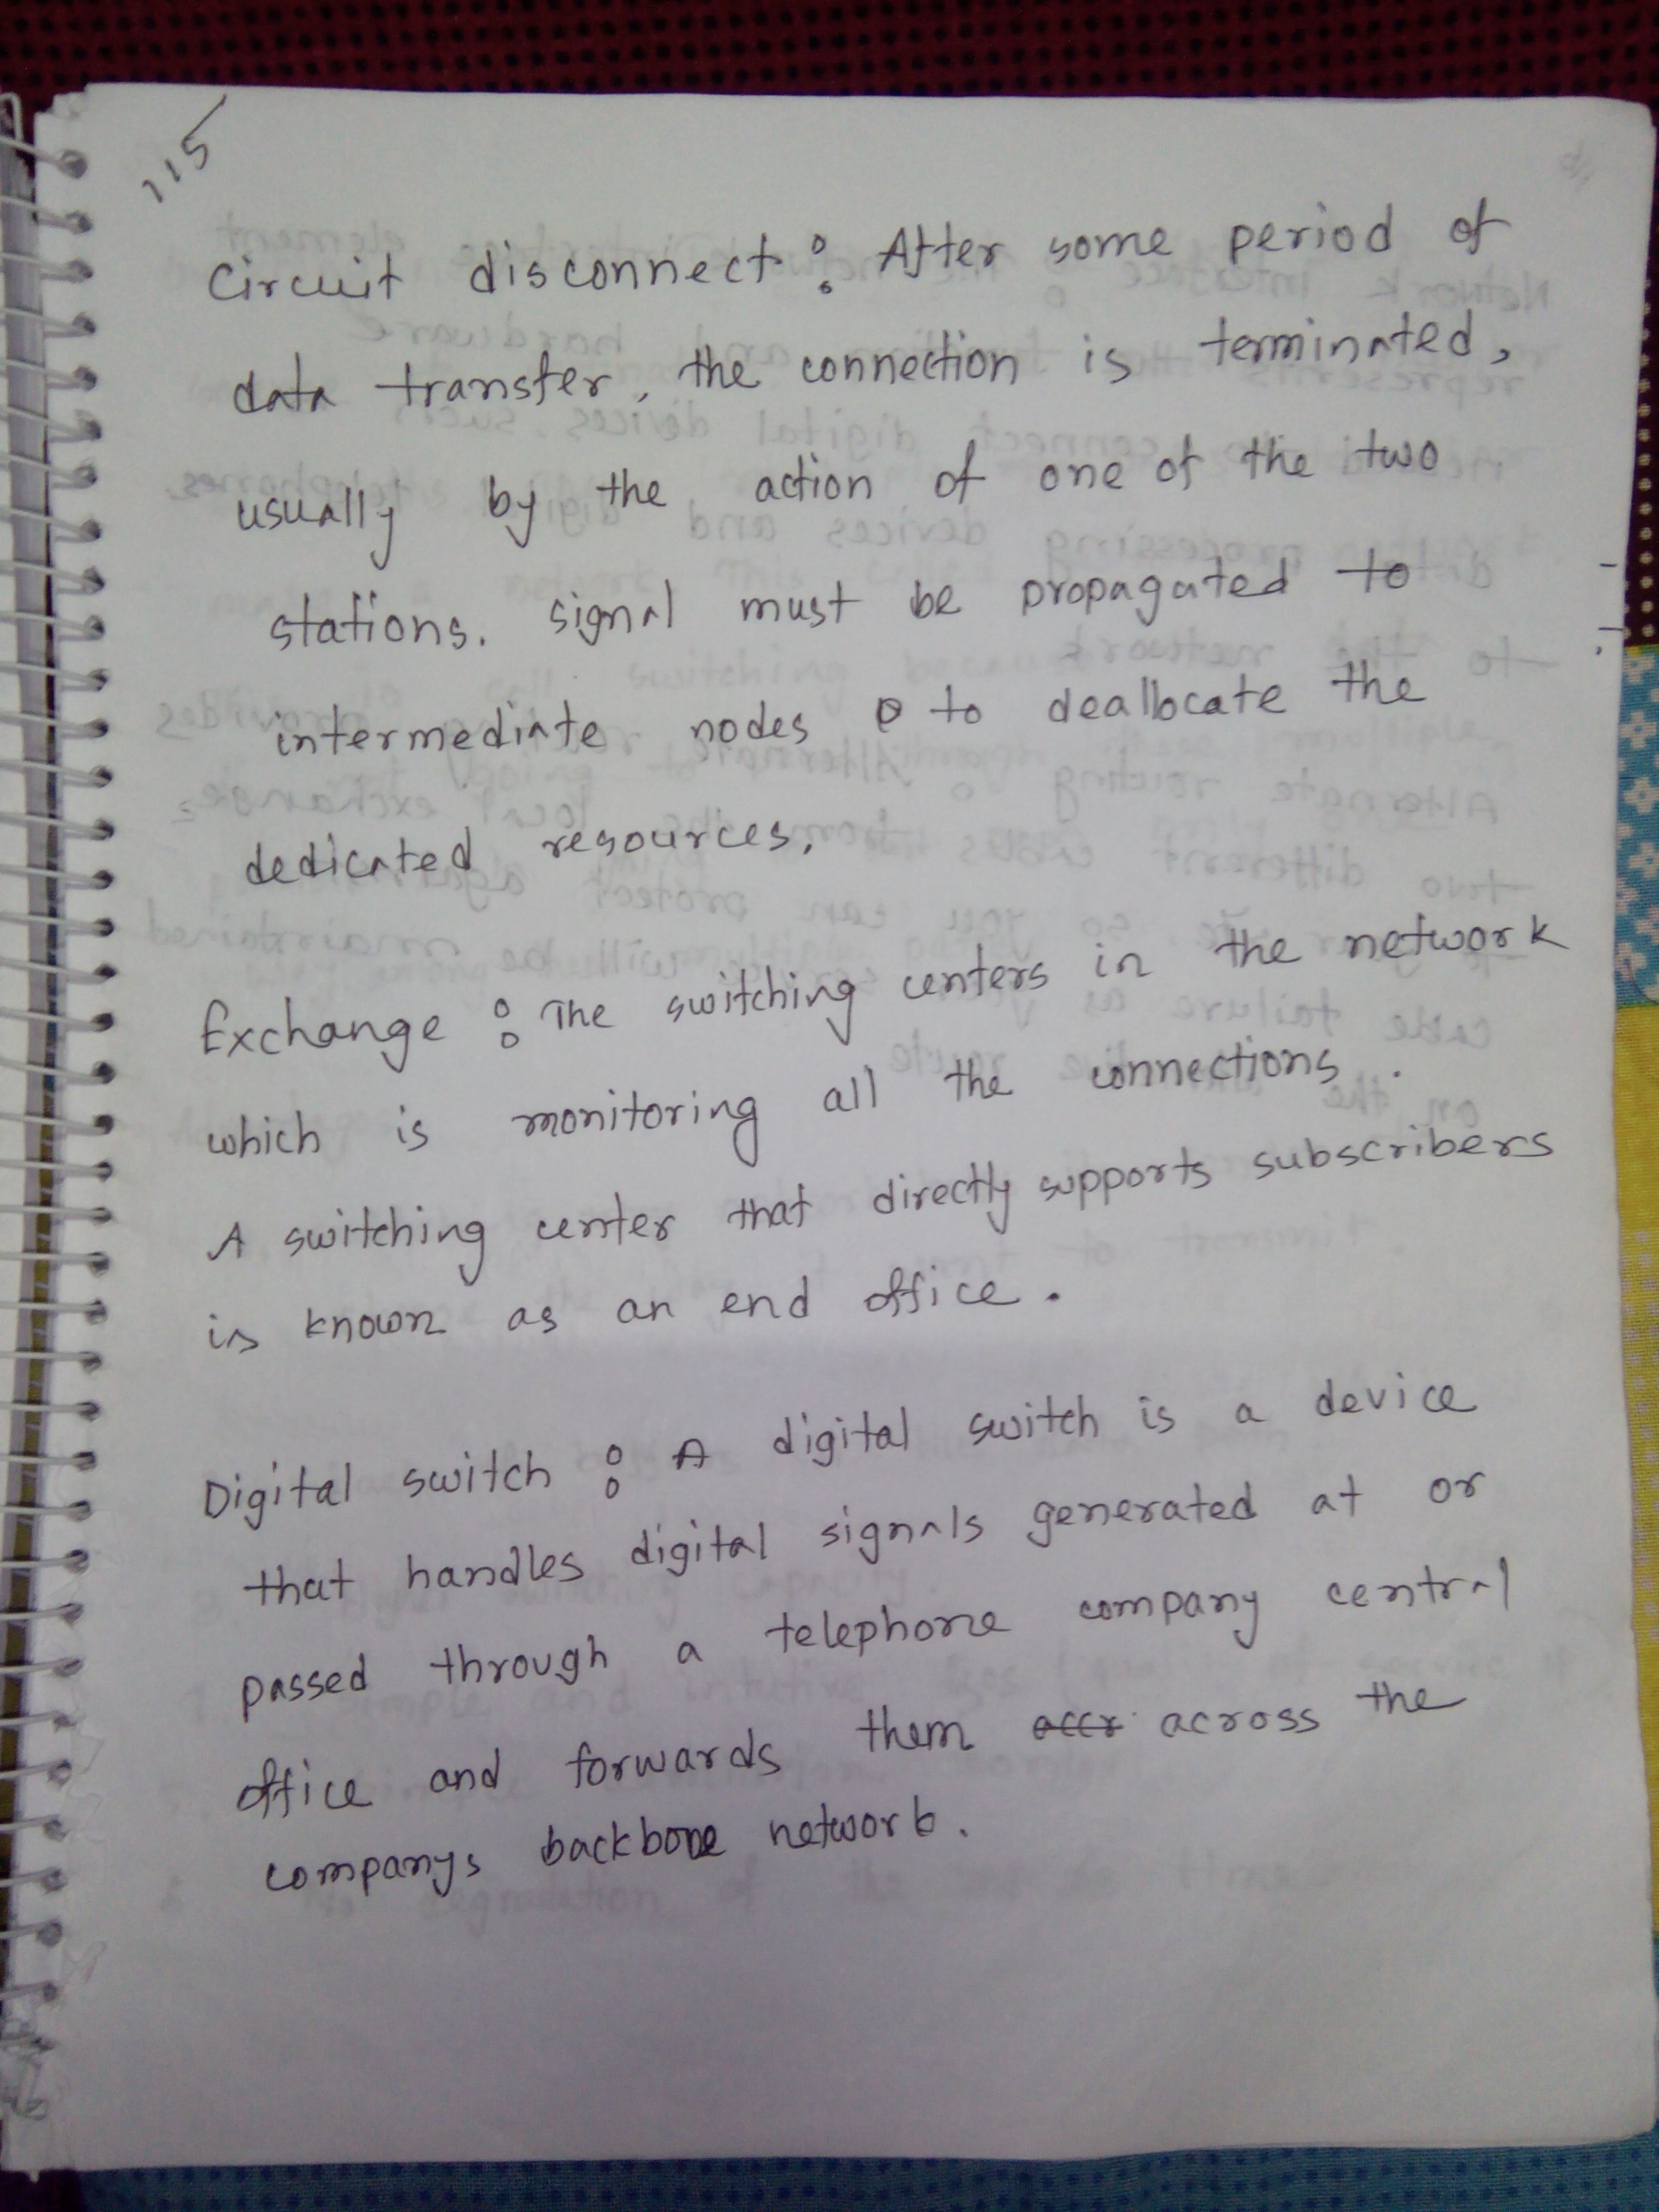 115
Circuit disconnect : After some period of
data transfer, the connection is terminated,
usually by the action of one of the two
stations. signal must be propagated to
intermediate nodes to deallocate the
dedicated resources.
Exchange : The switching centers in the network
which is monitoring all the connections.
A switching center that directly supports subscribers
is known as an end office.
Digital switch : A digital switch is a device
that handles digital signals generated at or
passed through a telephone company central
office and forwards them accr across the
companys backbone network.